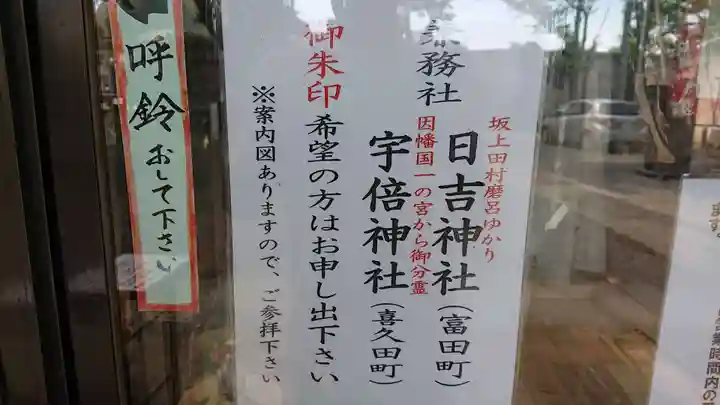 呼鈴おして下さい
兼務社
坂上田村磨呂ゆかり
日吉神社(富田町)
因幡国一の宮から御分霊
宇倍神社(喜久田町)
御朱印希望の方はお申し出下さい
※案内図ありますので、ご参拝下さい